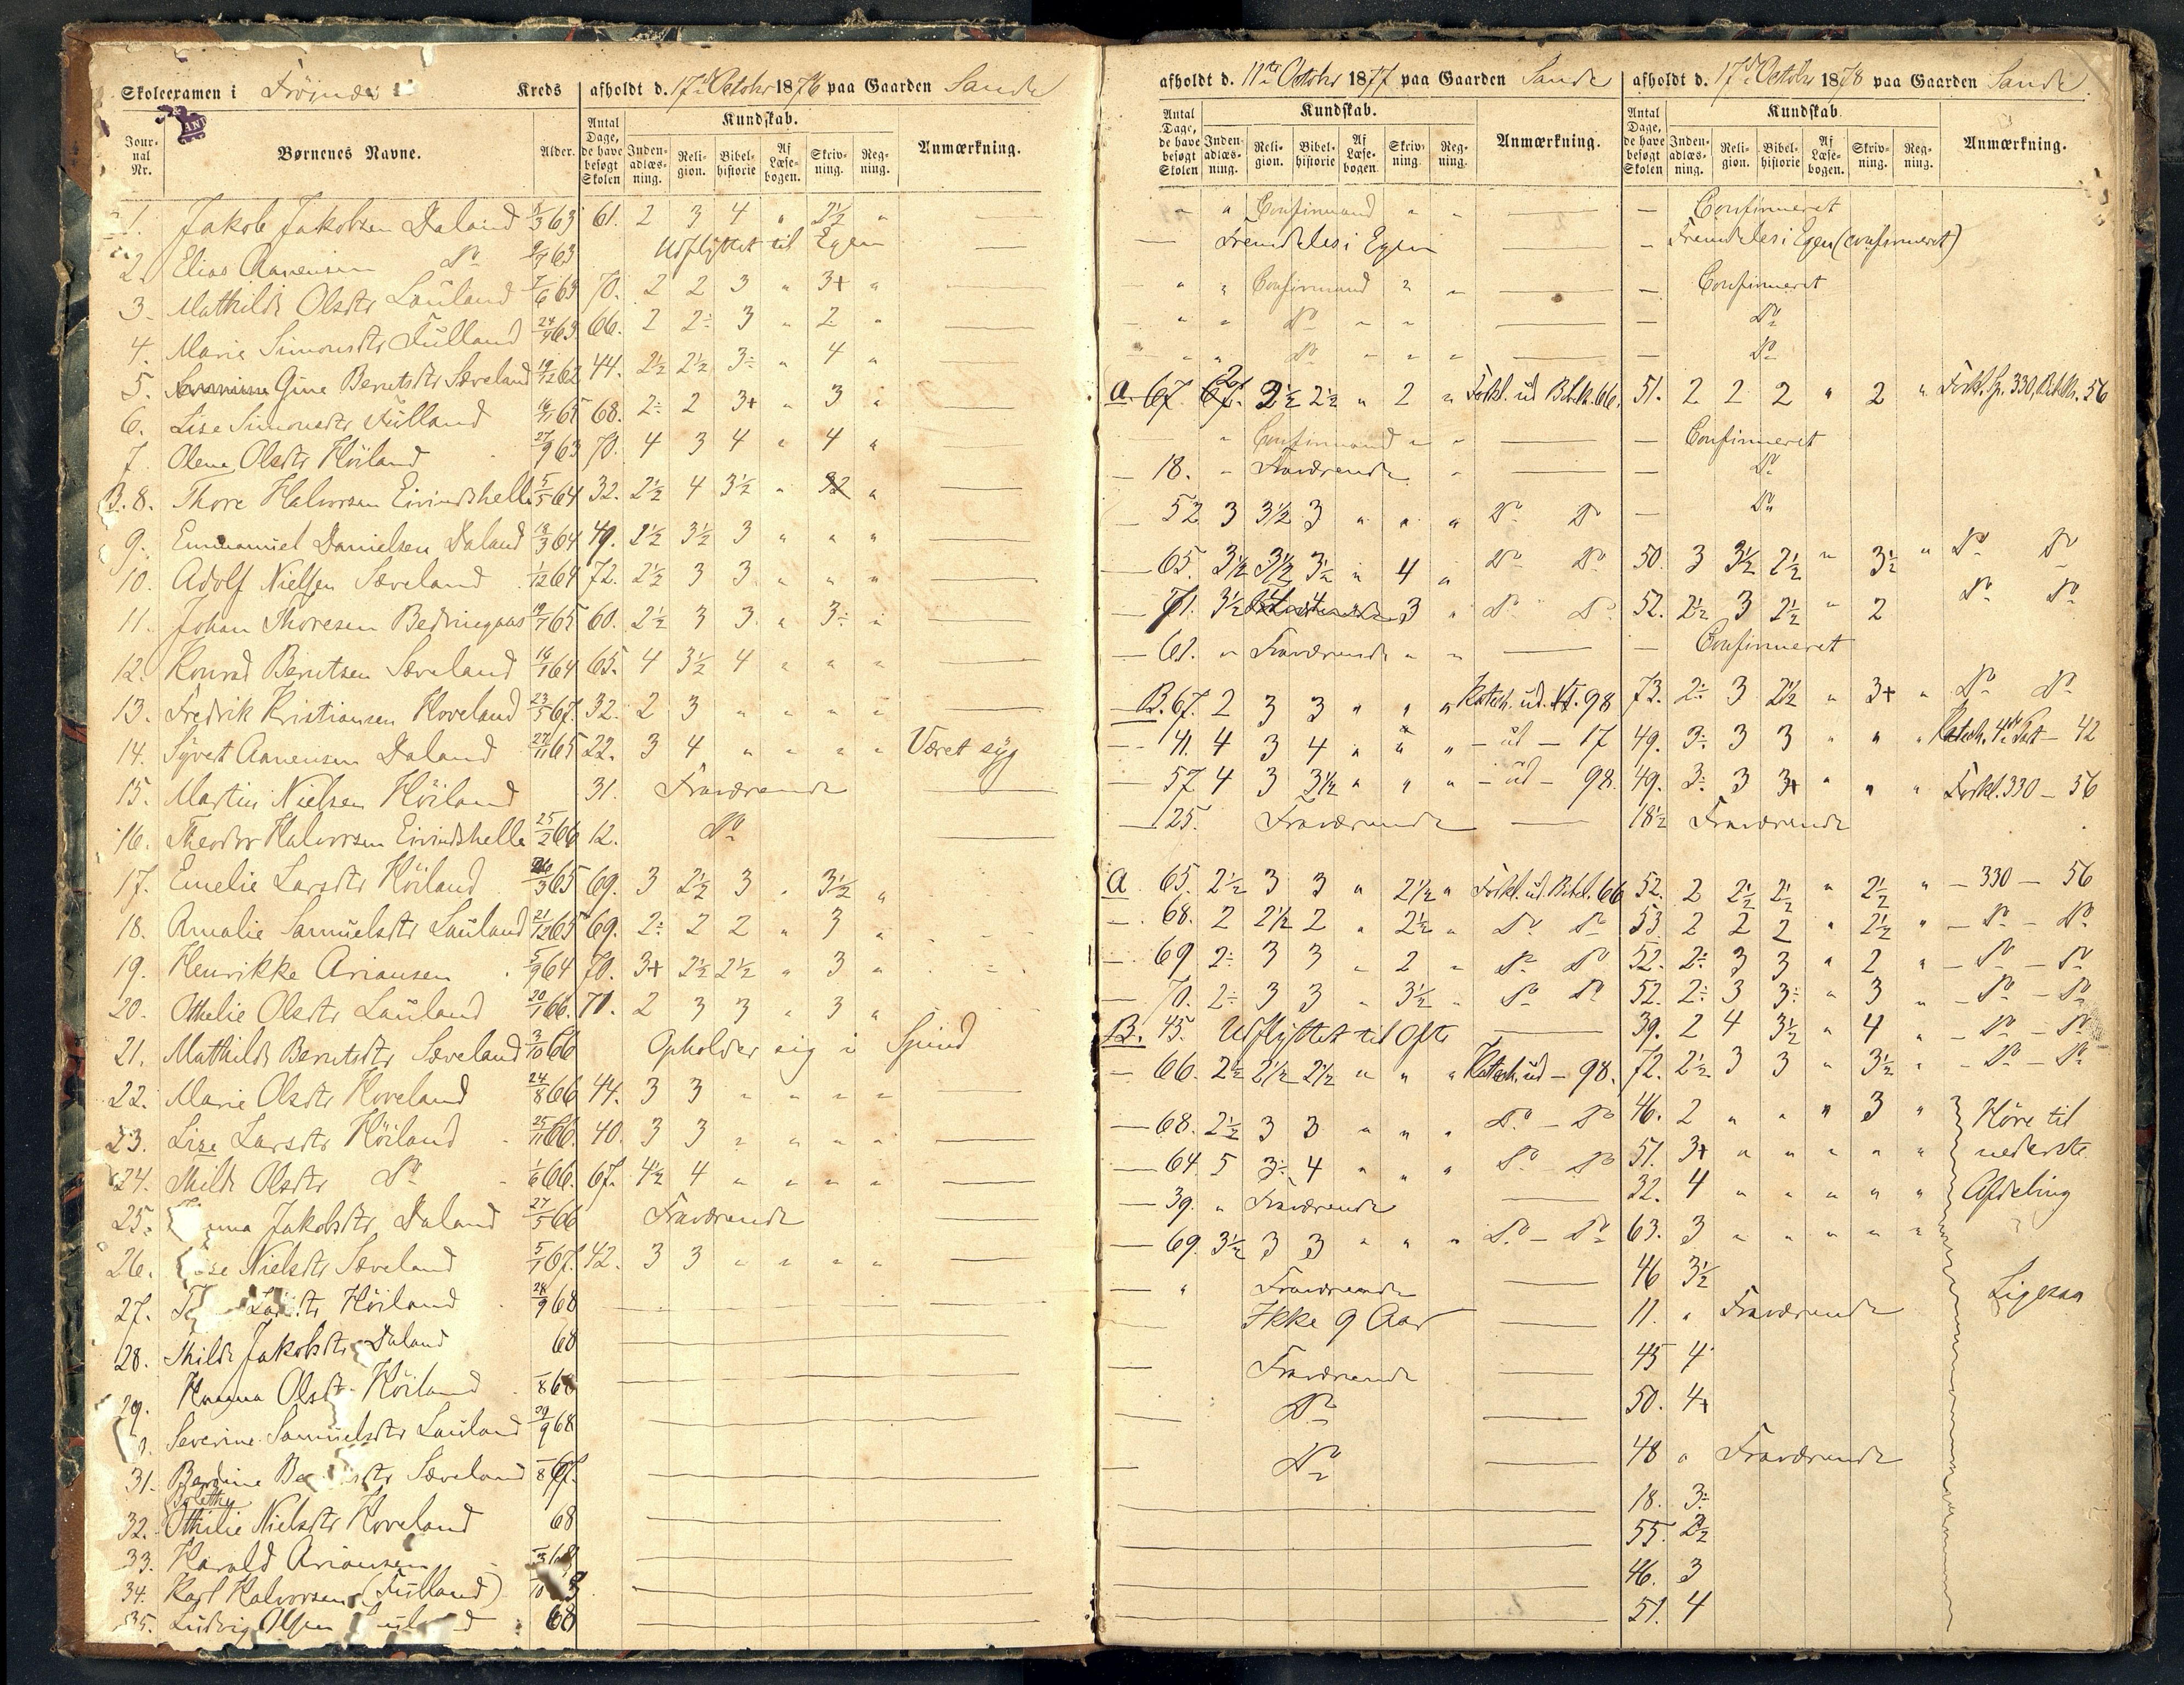 Skoleexamen i Kreds afholdt d. 17de October 1876 paa Gaarden Sande
Jour-nal Nr. Børnenes Navne. Alder. Antal Dage, de have besøgt Skolen Kundskab. Inden-adlæs-ning. Reli-gion. Bibel-historie Af Læse-bogen. Skriv-ning. Reg-ning. Anmærkning.
1. Jakob Jakobsen Daland 8/3 63 61. 2 3 4 " 2½ "
2. Elias Aanensen Do 63 Udflyttet til Egen
3. Mathilde Olsdtr Lauland 7/6 63 70. 2 2 3 " 3+ "
4. Marie Simonsdtr Fulland 24/9 63 66. 2 2÷ 3 " 2 "
5. Gine Berntsdtr Sæveland 19/12 62 44. 2½ 2½ 3÷ " 4 "
6. Lise Simonsdtr Fulland 65 68. 2÷ 2 3+ " 3 "
7. Olene Olsdtr Höiland 27/9 63 70. 4 3 4 " 4 "
B. 8. Thore Halvorsen Eivindshelle 5/5 64 32. 2½ 4 3½ " "
9. Emmanuel Danielsen Daland 13/3 64 49. 2½ 3½ 3 " " "
10. Adolf Nielsen Sæveland 1/12 64 72. 2½ 3 3 " " "
11. Johan Thoresen 19/7 65 60. 2½ 3 3 " 3÷ "
12. Konrad Berntsen Sæveland 64 65. 4 3½ 4 " " "
13. Fredrik Kristiansen Hoveland 23/5 67. 32. 2 3 " " " "
14. Syvert Aanensen Daland 27/11 65 22. 3 4 " " " " Været syg
15. Martin Nielsen Höiland 31. Fraværende
16. Theodor Halvorsen Eivindshelle 25/2 66 12. Do
17. Emelie Larsdtr Höiland 65 69. 3 2½ 3 " 3½ "
18. Amalie Samuelsdtr Lauland 21/12 65 69. 2÷ 2 2 " 3 "
19. Henrikke Ariansen 5/9 64 70. 3+ 2½ 2½ " 3 "
20. Othelie Olsdtr Lauland 20/1 66. 71. 2 3 3 " 3 "
21. Mathilde Berntsdtr Sæveland 3/10 66 Opholder sig i Spind
22. Marie Olsdtr Hoveland 24/8 66 44. 3 3 " " " "
23. Lise Larsdtr Höiland 25/11 66. 40. 3 3 " " " "
24. Thilde Olsdtr Do 1/6 66. 67. 4½ 4 " " " "
25. Jakobsdtr. Daland 27/5 66 Fraværende
26. Nielsdtr Sæveland 5/1 67. 42. 3 3 " " " "
27. Höiland 28/9 68
28. Thilde Jakobsdtr Daland 68
29. Hanna Olsdtr Höiland
Severine Samuelsdtr Lauland 29/9 68
31. Sæveland 67.
32. Othilie Nielsdtr Hoveland 68
33. Harald Ariansen
34. Karl Halvorsen (Fulland)
35. Ludvig Olsen 68
afholdt d. 11te October 1877 paa Gaarden Sande
Antal Dage, de have besøgt Skolen Kundskab. Inden-adlæs-ning. Reli-gion. Bibel-historie Af Læse-bogen. Skriv-ning. Reg-ning. Anmærkning.
" " Confirmand " "
Fremdeles i Egen
" " Confirmand " "
" " Do " "
" " Do " " "
a. 67. 2 2½ 2½ " 2 " Forkl. ud Bibelh. 66.
" Confirmand " "
18. " Fraværende "
52 3 3½ 3 " " " Do Do
65. 3½ 3½ 3½ " 4 " Do Do
71. 3½ 3 " Do Do
61. " Fraværende " "
B. 67. 2 3 3 " " " Katech. ud. 98
41. 4 3 4 " " " – ud – 17
57 4 3 3½ " " " – ud – 98.
125. Fraværende
a 65. 2½ 3 3 " 2½ " Forkl. ud. Bibel. 66
68. 2 2½ 2 " 2½ " Do Do
69 2÷ 3 3 " 2 " Do Do
70. 2÷ 3 3 " 3½ " Do Do
B. 45. Udflyttet til
66. 2½ 2½ 2½ " " " Katech. ud – 98.
68. 2½ 3 3 " " " Do – Do
64. 5 3÷ 4 " " " Do – Do
39. " Fraværende
69. 3½ 3 3 " " " Do – Do
" Fraværende
Ikke 9 Aar
Fraværende
Do
Do
afholdt d. 17de October 1878 paa Gaarden Sande.
Antal Dage, de have besøgt Skolen Kundskab Inden-adlæs-ning. Reli-gion. Bibel-historie Af Læse-bogen. Skriv-ning. Reg-ning. Anmærkning.
– Confirmeret
– Fremdeles i Egen (confirmeret)
– Confirmeret
– Do
– Do
51. 2 2 2 " 2 " Forkl. Sp. 330, Bibelh. 56
– Confirmeret
– Do
– Do
50. 3 3½ 2½ " 3½ " Do Do
52. 2½ 3 2½ " 2 Do Do
– Confirmeret
73. 2÷ 3 2½ " 3+ " Do Do
49. 3÷ 3 3 " " " Katech. 4de Part – 42
49. 3÷ 3 3+ " " " Forkl. 330 – 56
18½ Fraværende
52. 2 2½ 2½ " 2½ " – 330 – 56
53. 2 2 2 " 2½ " – Do – Do
52. 2÷ 3 3 " 2 " – Do – Do
52. 2÷ 3 3÷ " 3 " – Do – Do
39. 2 4 3½ " 4 " – Do – Do
72. 2½ 3 3 " 3½ " – Do – Do
46. 2 " " " 3 " Höre til
51. 3+ " " " " " nederste
32. 4 " " " " " Afdeling
63. 3 " " " " "
46 3½ Ligesaa
11. " Fraværende
45 4
50. 4+
48 " Fraværende
18. 3÷
55. 2½
46. 3
51. 4